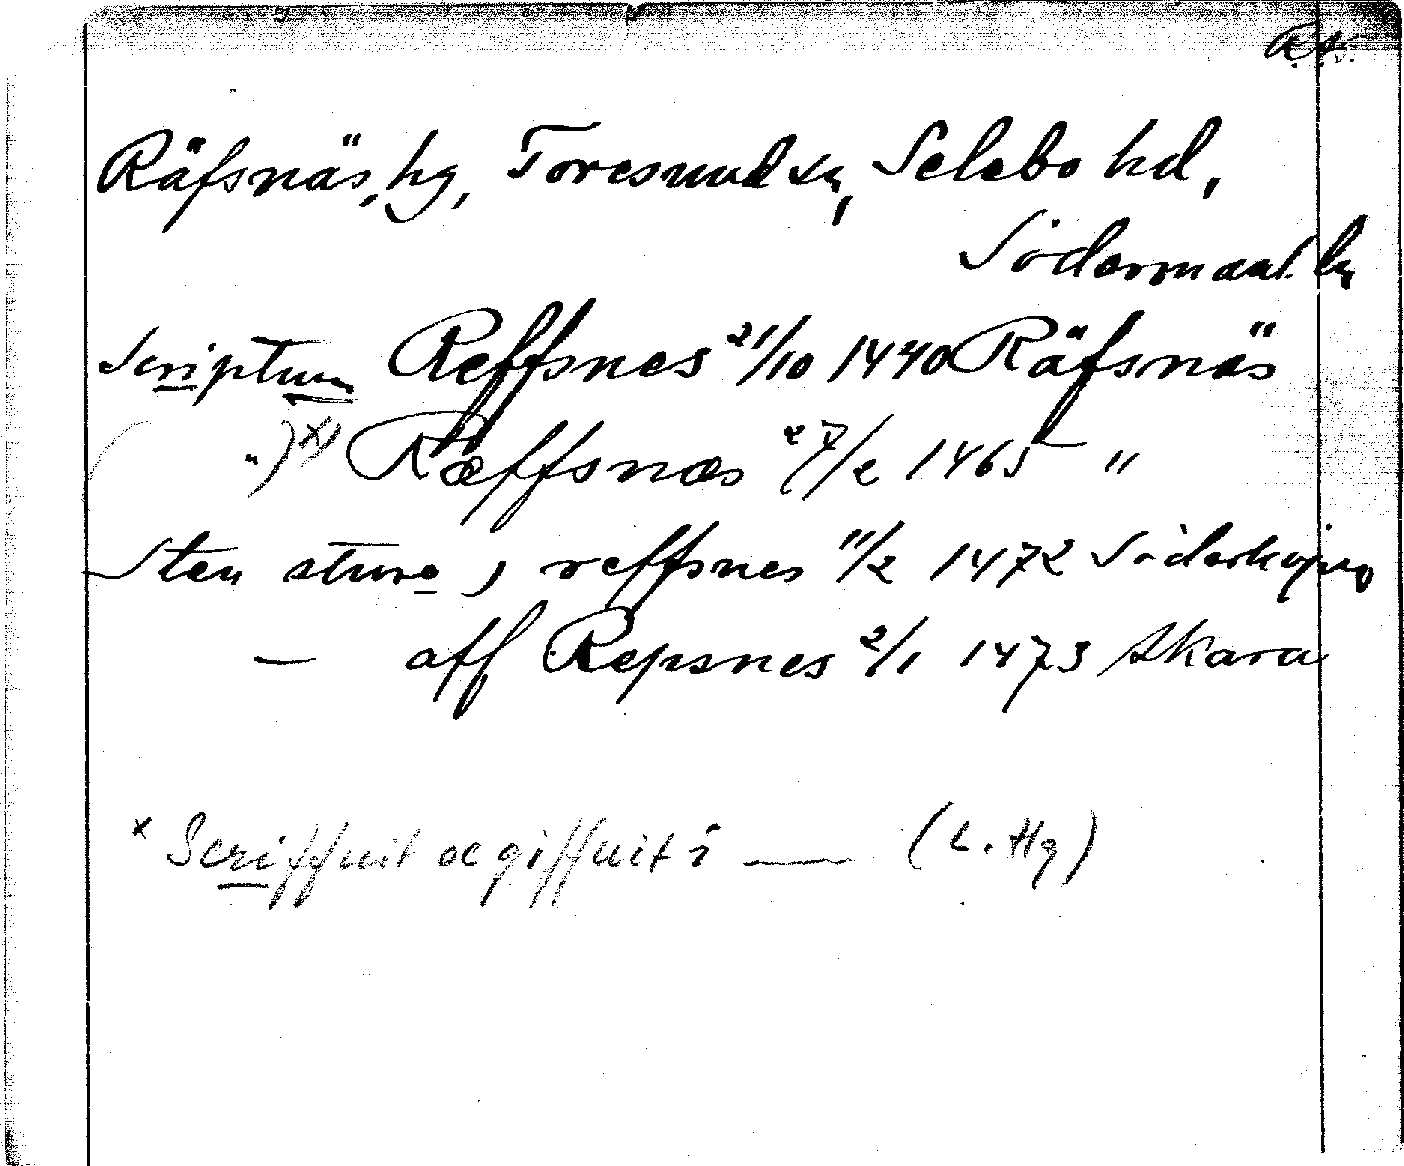 R.A.
Räfsnäs, hg, Toresund sn, Selebo hd,
Södermanl. ln
Scriptum Reffsnes 21/10 1440 Räfsnäs
( " ) x) Ræffsnæs 27/2 1465 "
Sten sture, reffsnes 11/2 1472 Söderköping
— aff Repsnes 2/1 1473 Skara
x Scriffuit oc giffuit i — (L. Hg)